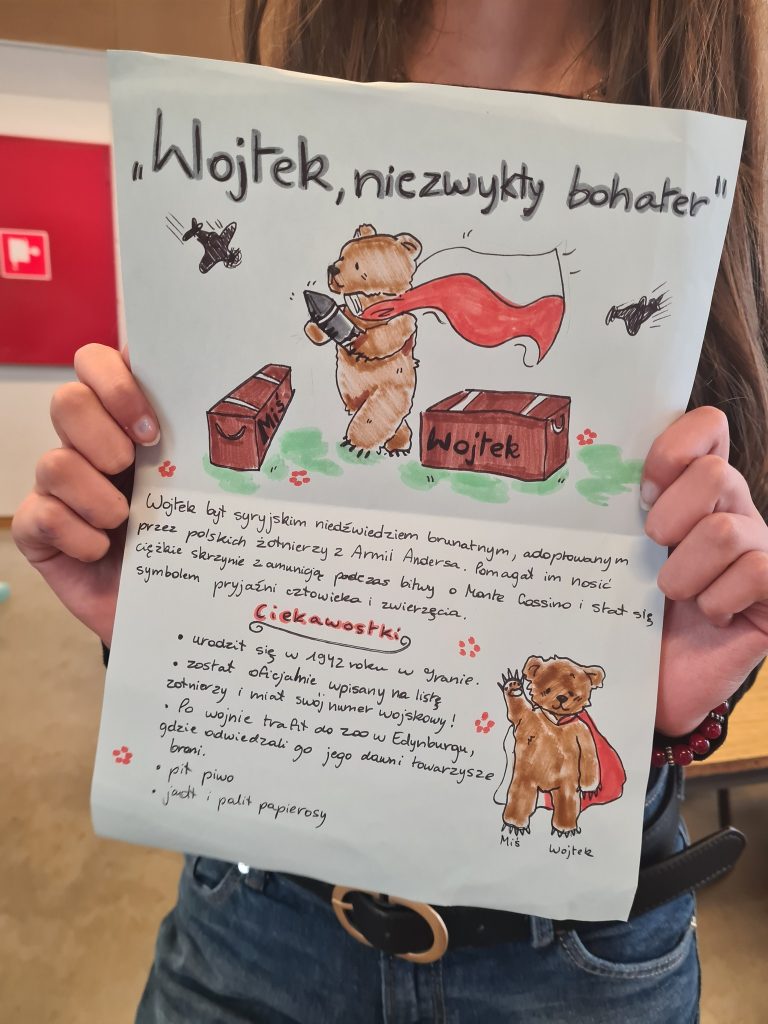 „Wojtek, niezwykły bohater"
Miś
Wojtek
Wojtek był syryjskim niedźwiedziem brunatnym, adoptowanym
przez polskich żołnierzy z Armii Andersa. Pomagał im nosić
ciężkie skrzynie z amunicją podczas bitwy o Monte Cassino i stał się
symbolem przyjaźni człowieka i zwierzęcia.
Ciekawostki
• urodził się w 1942 roku w Iranie.
• został oficjalnie wpisany na listę
żołnierzy i miał swój numer wojskowy!
• Po wojnie trafił do zoo w Edynburgu,
gdzie odwiedzali go jego dawni towarzysze
broni.
• pił piwo
• jadł i palił papierosy
Miś Wojtek